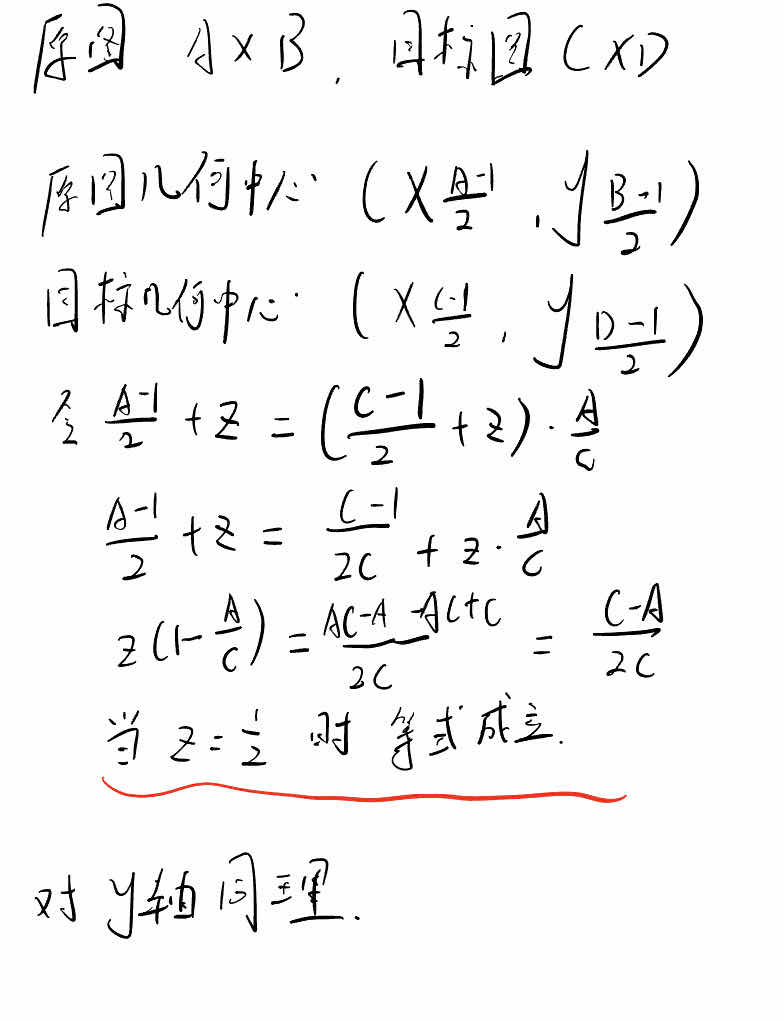 原图 A×B, 目标图 C×D
原图几何中心 (X_{\frac{A-1}{2}}, y_{\frac{B-1}{2}})
目标几何中心 (X_{\frac{C-1}{2}}, y_{\frac{D-1}{2}})
令 \frac{A-1}{2} + z = (\frac{C-1}{2} + z) · \frac{A}{C}
\frac{A-1}{2} + z = \frac{C-1}{2C} + z · \frac{A}{C}
z(1-\frac{A}{C}) = \frac{AC-A-AC+C}{2C} = \frac{C-A}{2C}
当 z = \frac{1}{2} 时 等式成立.
对 y轴同理.